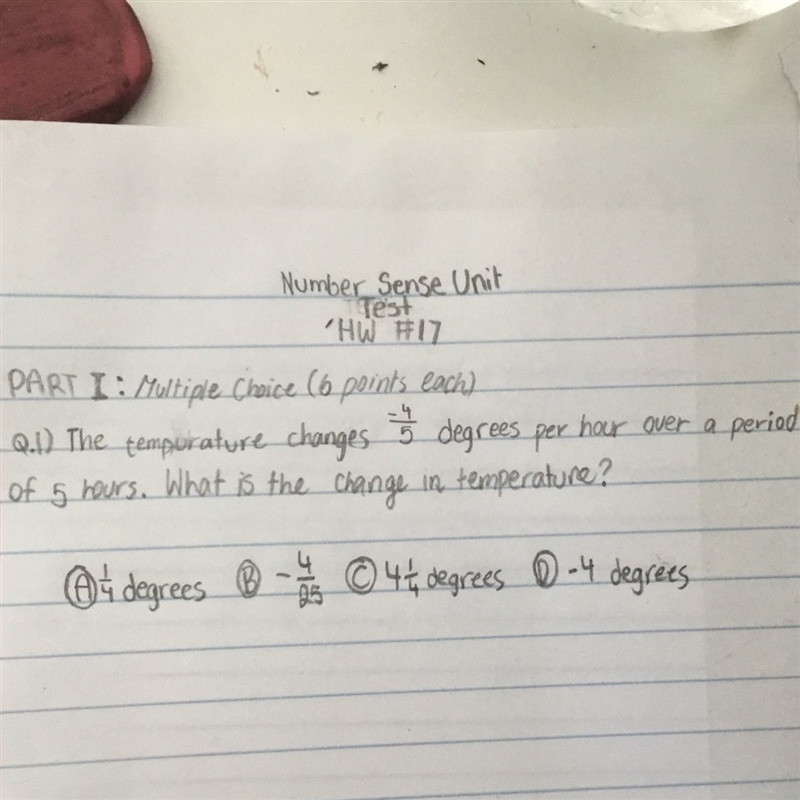 Number Sense Unit
Test
'HW #17
PART I: Multiple Choice (6 points each)
Q.1) The tempurature changes -4/5 degrees per hour over a period
of 5 hours. What is the change in temperature?
Ⓐ 1/4 degrees Ⓑ -4/25 Ⓒ 4 1/4 degrees Ⓓ -4 degrees